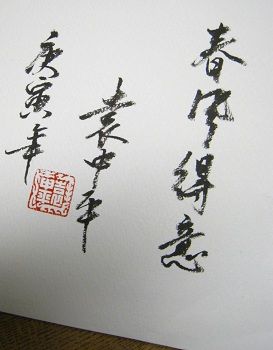 春风得意
袁中平
庚寅年